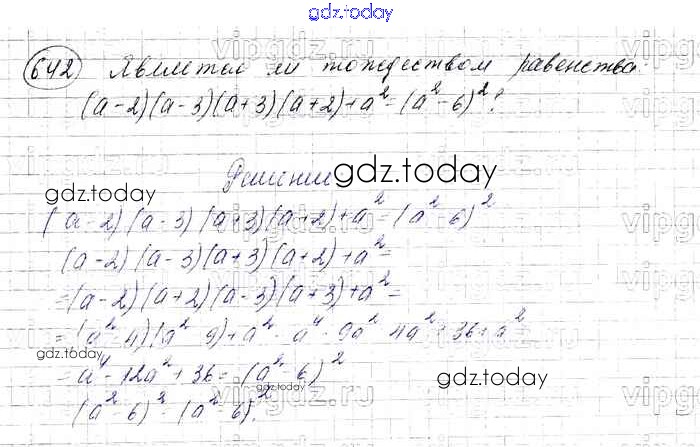 gdz.today
642 Является ли тождеством равенства
(a-2)(a-3)(a+3)(a+2)+a²=(a²-6)²?
Решение
gdz.today
gdz.today
(a-2)(a-3)(a+3)(a+2)+a²=(a²-6)²
(a-2)(a-3)(a+3)(a+2)+a²=
=(a-2)(a+2)(a-3)(a+3)+a²=
=(a²-4)(a²-9)+a²=a⁴-9a²-4a²+36+a²
gdz.today
=a⁴-12a²+36=(a²-6)²
gdz.today
gdz.today
(a²-6)²=(a²-6)².